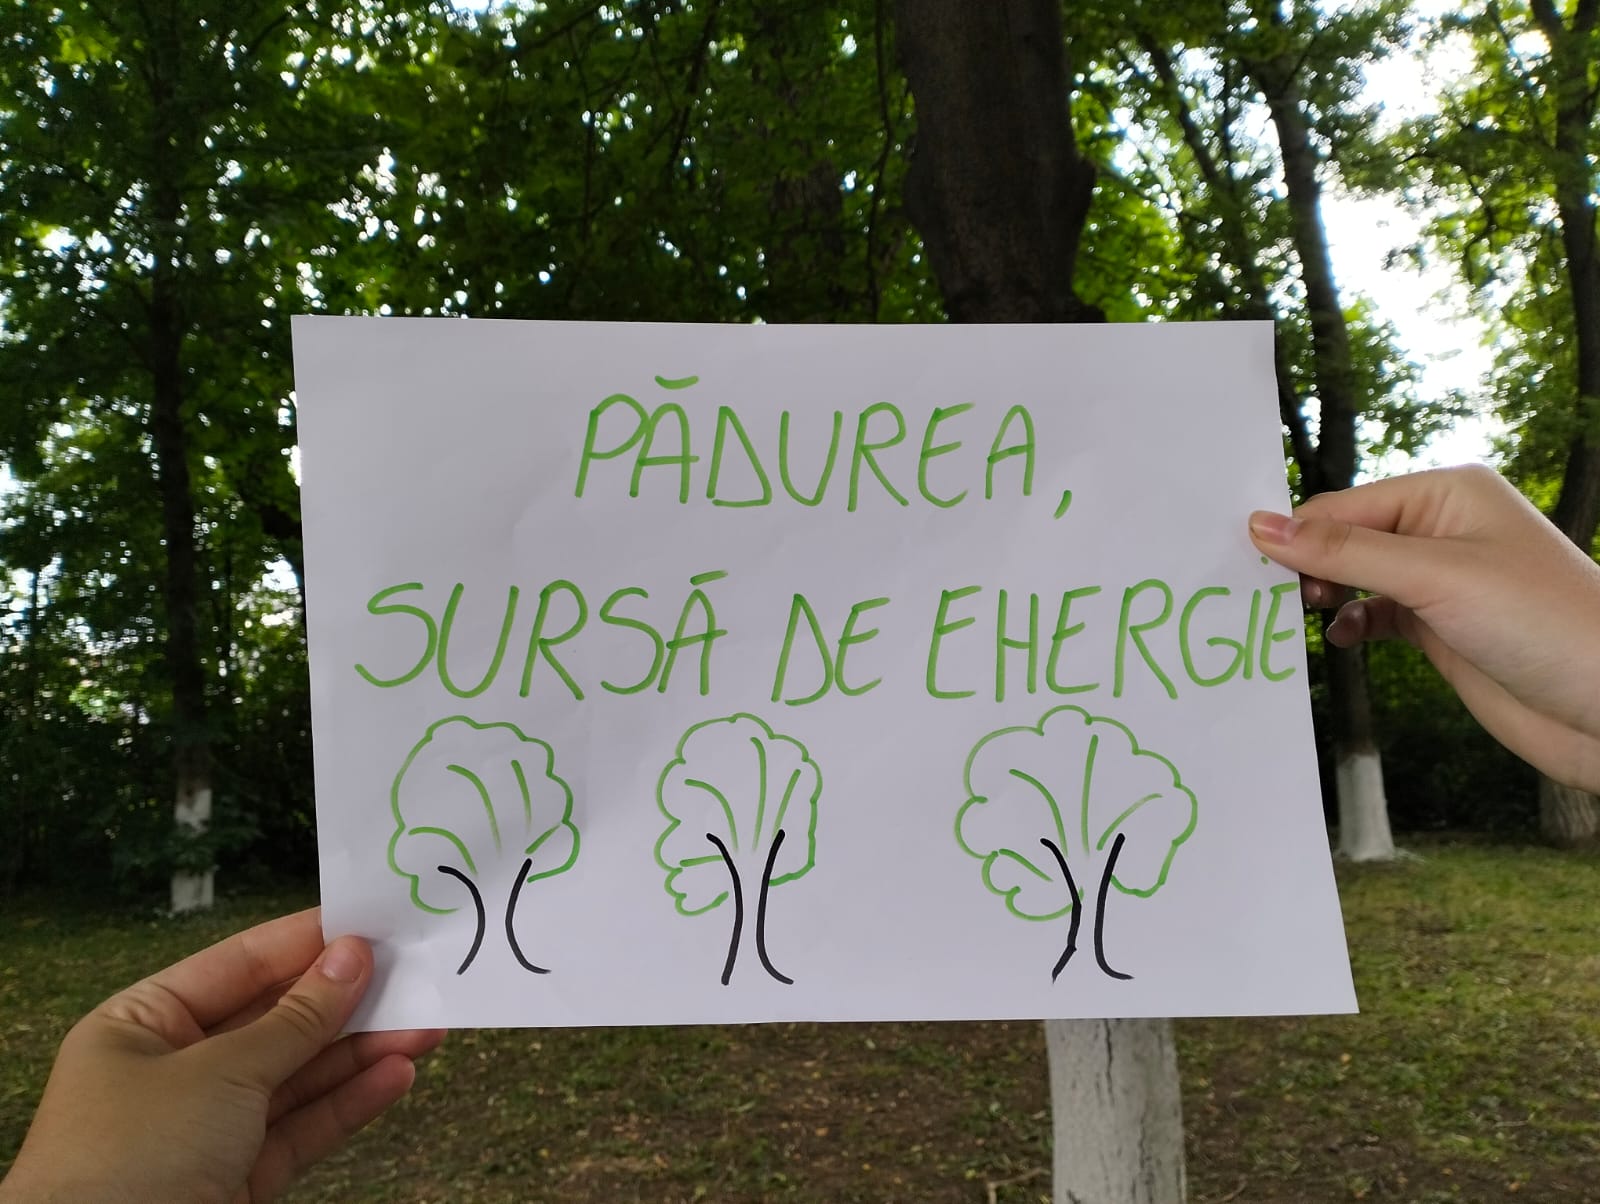 PĂDUREA,
SURSĂ DE ENERGIE